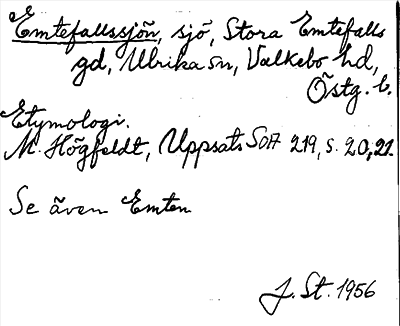 Emtefallssjön, sjö, Stora Emtefalls
gd, Ulrika sn, Valkebo hd,
Östg. l.
Etymologi.
M. Högfeldt, Uppsats SOA 219, s. 20, 21.
Se även Emten
J. St. 1956